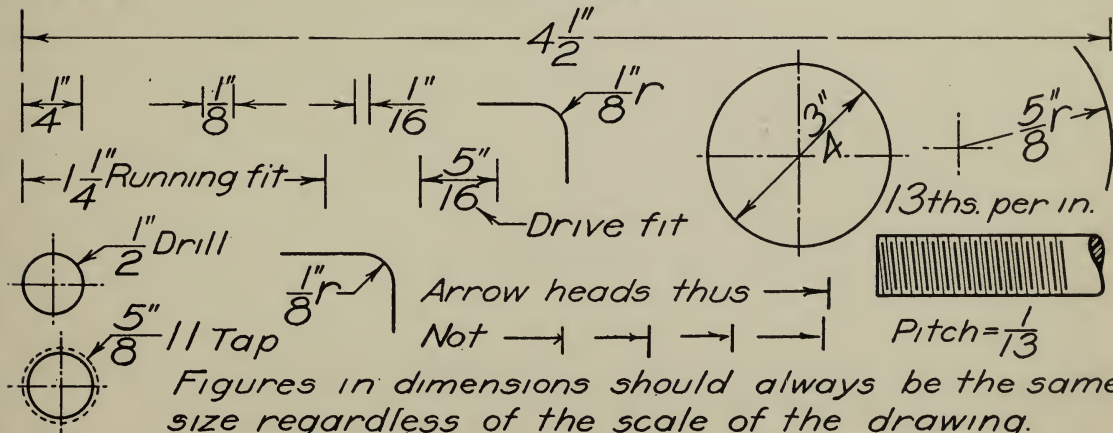 4 1/2"
1/4" 1/8" 1/16" 1/8"r 3/4" 5/8"r
1 1/4" Running fit 5/16" Drive fit 13ths. per in.
1/2" Drill
1/8"r Arrow heads thus
5/8" 11 Tap Not Pitch=1/13
Figures in dimensions should always be the same
size regardless of the scale of the drawing.